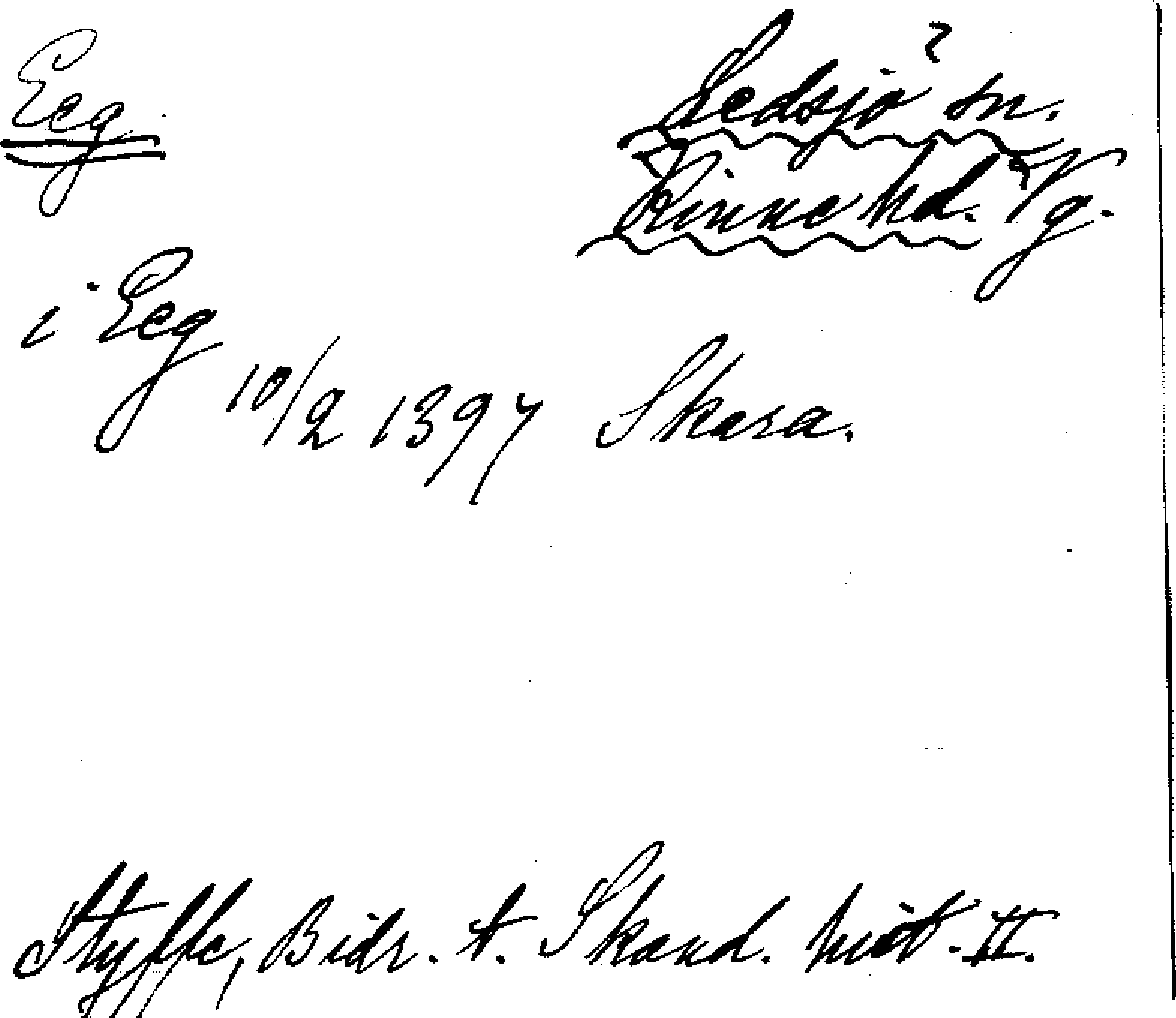 Ecg
?
Ledsjö sn.
Kinne hd. Vg.
i Ecg
10/2 1397 Skara.
Styffe, Bidr. t. Skand. hist. II.